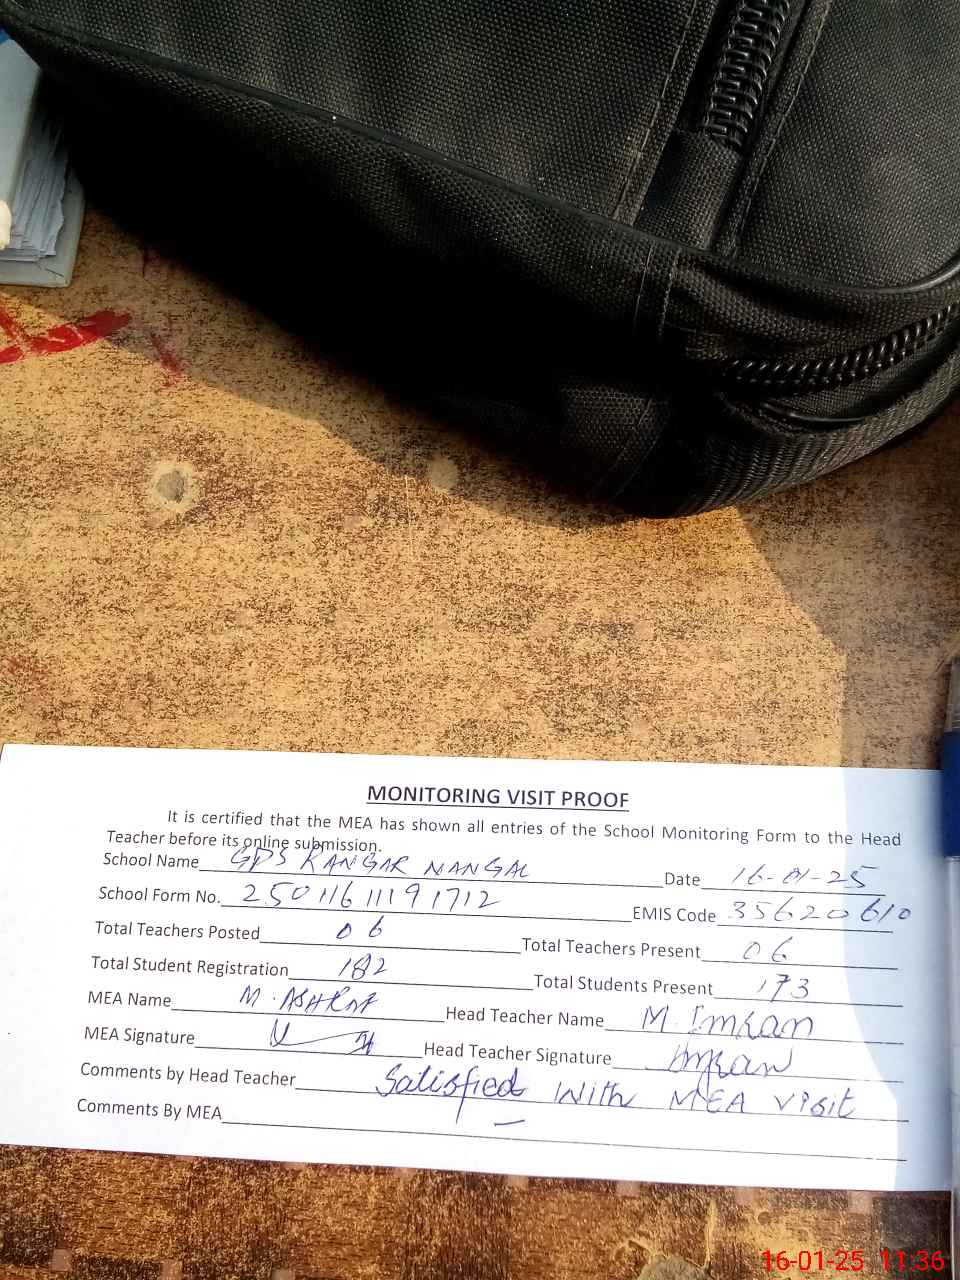 MONITORING VISIT PROOF
It is certified that the MEA has shown all entries of the School Monitoring Form to the Head
Teacher before its online submission.
School Name GPS RANGAR NANGAL Date 16-01-25
School Form No. 25011611191712 EMIS Code 35620610
Total Teachers Posted 06 Total Teachers Present 06
Total Student Registration 182 Total Students Present 173
MEA Name M. ASHRAF Head Teacher Name M. Imran
MEA Signature Head Teacher Signature Imran
Comments by Head Teacher Satisfied With MEA visit
Comments By MEA —
16-01-25 11:36